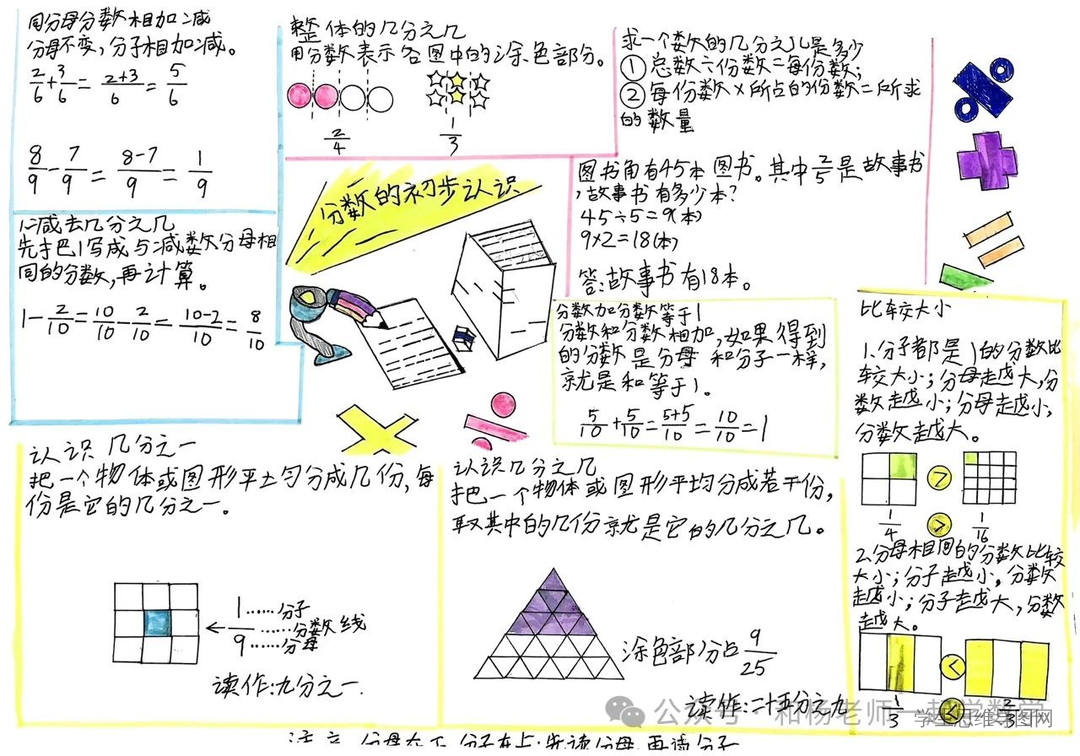 同分母分数相加减
分母不变,分子相加减。
2/6+3/6=2+3/6=5/6
8/9-7/9=8-7/9=1/9
1减去几分之几
先把1写成与减数分母相
同的分数,再计算。
1-2/10=10/10-2/10=10-2/10=8/10
整体的几分之几
用分数表示各图中的涂色部分。
2/4
1/3
分数的初步认识
求一个数的几分之几是多少
①总数÷份数=每份数;
②每份数×所占的份数=所求
的数量
图书角有45本图书。其中2/5是故事书
,故事书有多少本?
45÷5=9(本)
9×2=18(本)
答:故事书有18本。
分数加分数等于1
分数和分数相加,如果得到
的分数是分母和分子一样,
就是和等于1。
5/10+5/10=5+5/10=10/10=1
比较大小
1.分子都是1的分数比
较大小;分母越大,分
数越小;分母越小,
分数越大。
>
1/4 > 1/16
2.分母相同的分数比较
大小;分子越小,分数
越小;分子越大,分数
越大。
<
1/3 < 2/3
认识几分之一
把一个物体或图形平均分成几份,每
份是它的几分之一。
1……分子
……分数线
9……分母
读作:九分之一.
认识几分之几
把一个物体或图形平均分成若干份,
取其中的几份就是它的几分之几。
涂色部分占9/25
读作:二十五分之九
公众号·和杨老师一起学数学
学生思维导图网